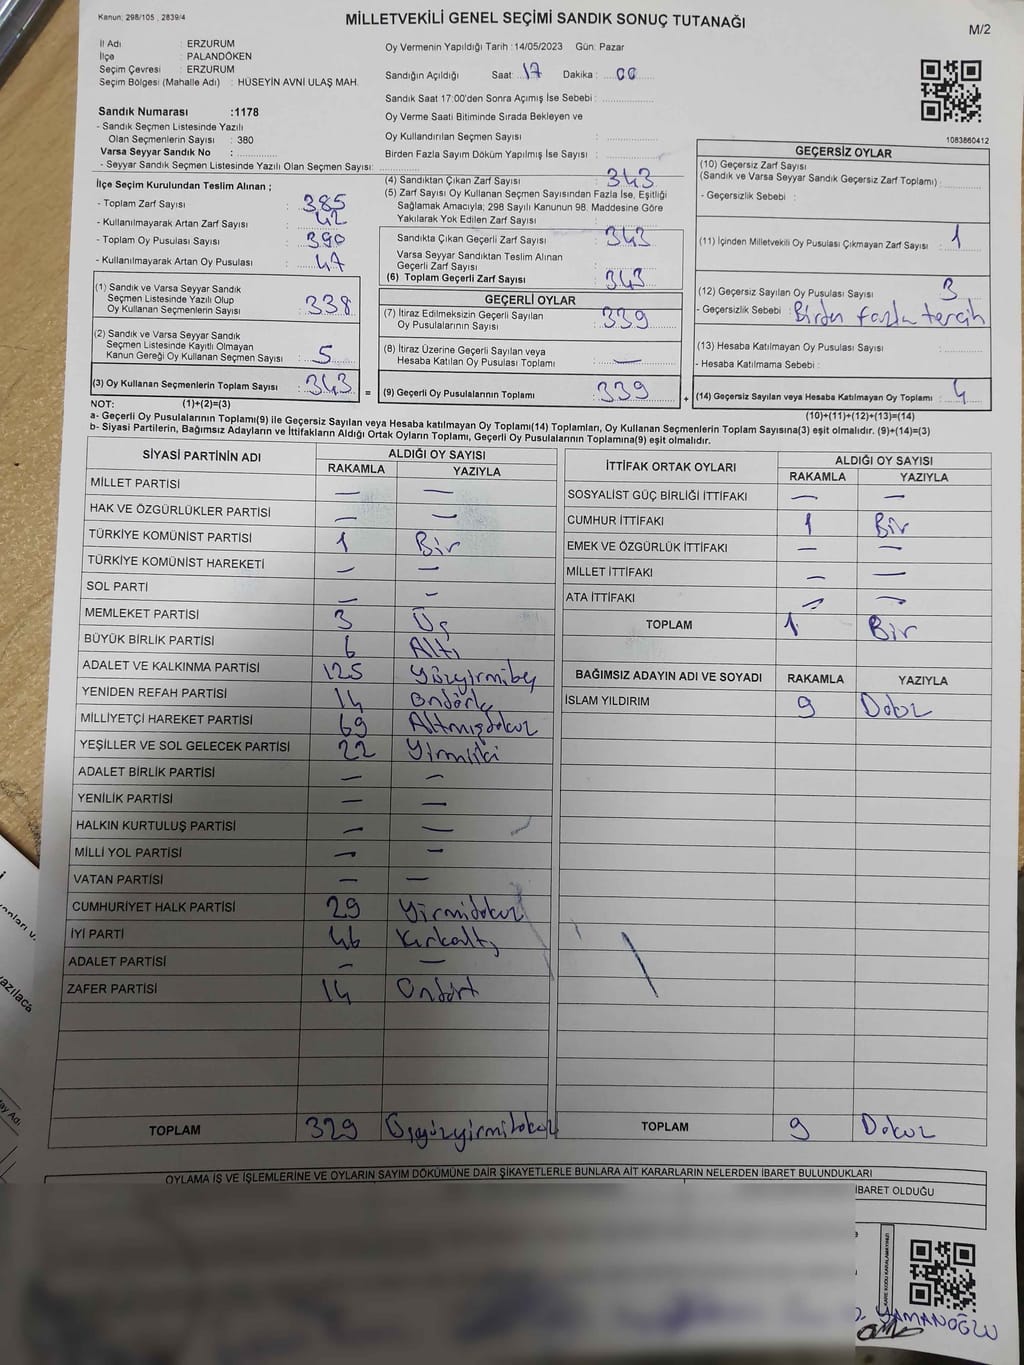 Kanun; 298/105 , 2839/4
MİLLETVEKİLİ GENEL SEÇİMİ SANDIK SONUÇ TUTANAĞI
M/2
İl Adı : ERZURUM
İlçe : PALANDÖKEN
Seçim Çevresi : ERZURUM
Seçim Bölgesi (Mahalle Adı) : HÜSEYİN AVNİ ULAŞ MAH.
Oy Vermenin Yapıldığı Tarih :14/05/2023 Gün: Pazar
Sandığın Açıldığı Saat: 17 Dakika : 00
Sandık Saat 17:00'den Sonra Açımış İse Sebebi :
Oy Verme Saati Bitiminde Sırada Bekleyen ve
Oy Kullandırılan Seçmen Sayısı :
Birden Fazla Sayım Döküm Yapılmış İse Sayısı :
Sandık Numarası :1178
- Sandık Seçmen Listesinde Yazılı
Olan Seçmenlerin Sayısı : 380
Varsa Seyyar Sandık No :
- Seyyar Sandık Seçmen Listesinde Yazılı Olan Seçmen Sayısı:
1083860412
İlçe Seçim Kurulundan Teslim Alınan ;
- Toplam Zarf Sayısı : 385
- Kullanılmayarak Artan Zarf Sayısı : 42
- Toplam Oy Pusulası Sayısı : 390
- Kullanılmayarak Artan Oy Pusulası : 47
(1) Sandık ve Varsa Seyyar Sandık
Seçmen Listesinde Yazılı Olup
Oy Kullanan Seçmenlerin Sayısı : 338
(2) Sandık ve Varsa Seyyar Sandık
Seçmen Listesinde Kayıtlı Olmayan
Kanun Gereği Oy Kullanan Seçmen Sayısı : 5
(3) Oy Kullanan Seçmenlerin Toplam Sayısı : 343
=
(4) Sandıktan Çıkan Zarf Sayısı : 343
(5) Zarf Sayısı Oy Kullanan Seçmen Sayısından Fazla İse, Eşitliği
Sağlamak Amacıyla; 298 Sayılı Kanunun 98. Maddesine Göre
Yakılarak Yok Edilen Zarf Sayısı :
Sandıkta Çıkan Geçerli Zarf Sayısı : 343
Varsa Seyyar Sandıktan Teslim Alınan
Geçerli Zarf Sayısı :
(6) Toplam Geçerli Zarf Sayısı : 343
GEÇERLİ OYLAR
(7) İtiraz Edilmeksizin Geçerli Sayılan
Oy Pusulalarının Sayısı : 339
(8) İtiraz Üzerine Geçerli Sayılan veya
Hesaba Katılan Oy Pusulası Toplamı : —
(9) Geçerli Oy Pusulalarının Toplamı : 339
+
GEÇERSİZ OYLAR
(10) Geçersiz Zarf Sayısı
(Sandık ve Varsa Seyyar Sandık Geçersiz Zarf Toplamı) :
- Geçersizlik Sebebi :
(11) İçinden Milletvekili Oy Pusulası Çıkmayan Zarf Sayısı : 1
(12) Geçersiz Sayılan Oy Pusulası Sayısı : 3
- Geçersizlik Sebebi : Birden fazla tercih
(13) Hesaba Katılmayan Oy Pusulası Sayısı :
- Hesaba Katılmama Sebebi :
(14) Geçersiz Sayılan veya Hesaba Katılmayan Oy Toplamı : 4
NOT: (1)+(2)=(3)
(10)+(11)+(12)+(13)=(14)
a- Geçerli Oy Pusulalarının Toplamı(9) ile Geçersiz Sayılan veya Hesaba katılmayan Oy Toplamı(14) Toplamları, Oy Kullanan Seçmenlerin Toplam Sayısına(3) eşit olmalıdır. (9)+(14)=(3)
b- Siyasi Partilerin, Bağımsız Adayların ve İttifakların Aldığı Ortak Oyların Toplamı, Geçerli Oy Pusulalarının Toplamına(9) eşit olmalıdır.
SİYASİ PARTİNİN ADI ALDIĞI OY SAYISI
RAKAMLA YAZIYLA
MİLLET PARTİSİ — —
HAK VE ÖZGÜRLÜKLER PARTİSİ — —
TÜRKİYE KOMÜNİST PARTİSİ 1 Bir
TÜRKİYE KOMÜNİST HAREKETİ — —
SOL PARTİ — —
MEMLEKET PARTİSİ 3 Üç
BÜYÜK BİRLİK PARTİSİ 6 Altı
ADALET VE KALKINMA PARTİSİ 125 Yüzyirmibeş
YENİDEN REFAH PARTİSİ 14 Ondört
MİLLİYETÇİ HAREKET PARTİSİ 69 Altmışdokuz
YEŞİLLER VE SOL GELECEK PARTİSİ 22 Yirmiiki
ADALET BİRLİK PARTİSİ — —
YENİLİK PARTİSİ — —
HALKIN KURTULUŞ PARTİSİ — —
MİLLİ YOL PARTİSİ — —
VATAN PARTİSİ — —
CUMHURİYET HALK PARTİSİ 29 Yirmidokuz
İYİ PARTİ 46 Kırkaltı
ADALET PARTİSİ — —
ZAFER PARTİSİ 14 Ondört
TOPLAM 329 Üçyüzyirmidokuz
İTTİFAK ORTAK OYLARI ALDIĞI OY SAYISI
RAKAMLA YAZIYLA
SOSYALİST GÜÇ BİRLİĞİ İTTİFAKI — —
CUMHUR İTTİFAKI 1 Bir
EMEK VE ÖZGÜRLÜK İTTİFAKI — —
MİLLET İTTİFAKI — —
ATA İTTİFAKI — —
TOPLAM 1 Bir
BAĞIMSIZ ADAYIN ADI VE SOYADI RAKAMLA YAZIYLA
İSLAM YILDIRIM 9 Dokuz
TOPLAM 9 Dokuz
OYLAMA İŞ VE İŞLEMLERİNE VE OYLARIN SAYIM DÖKÜMÜNE DAİR ŞİKAYETLERLE BUNLARA AİT KARARLARIN NELERDEN İBARET BULUNDUKLARI
İBARET OLDUĞU
YAMANOĞLU